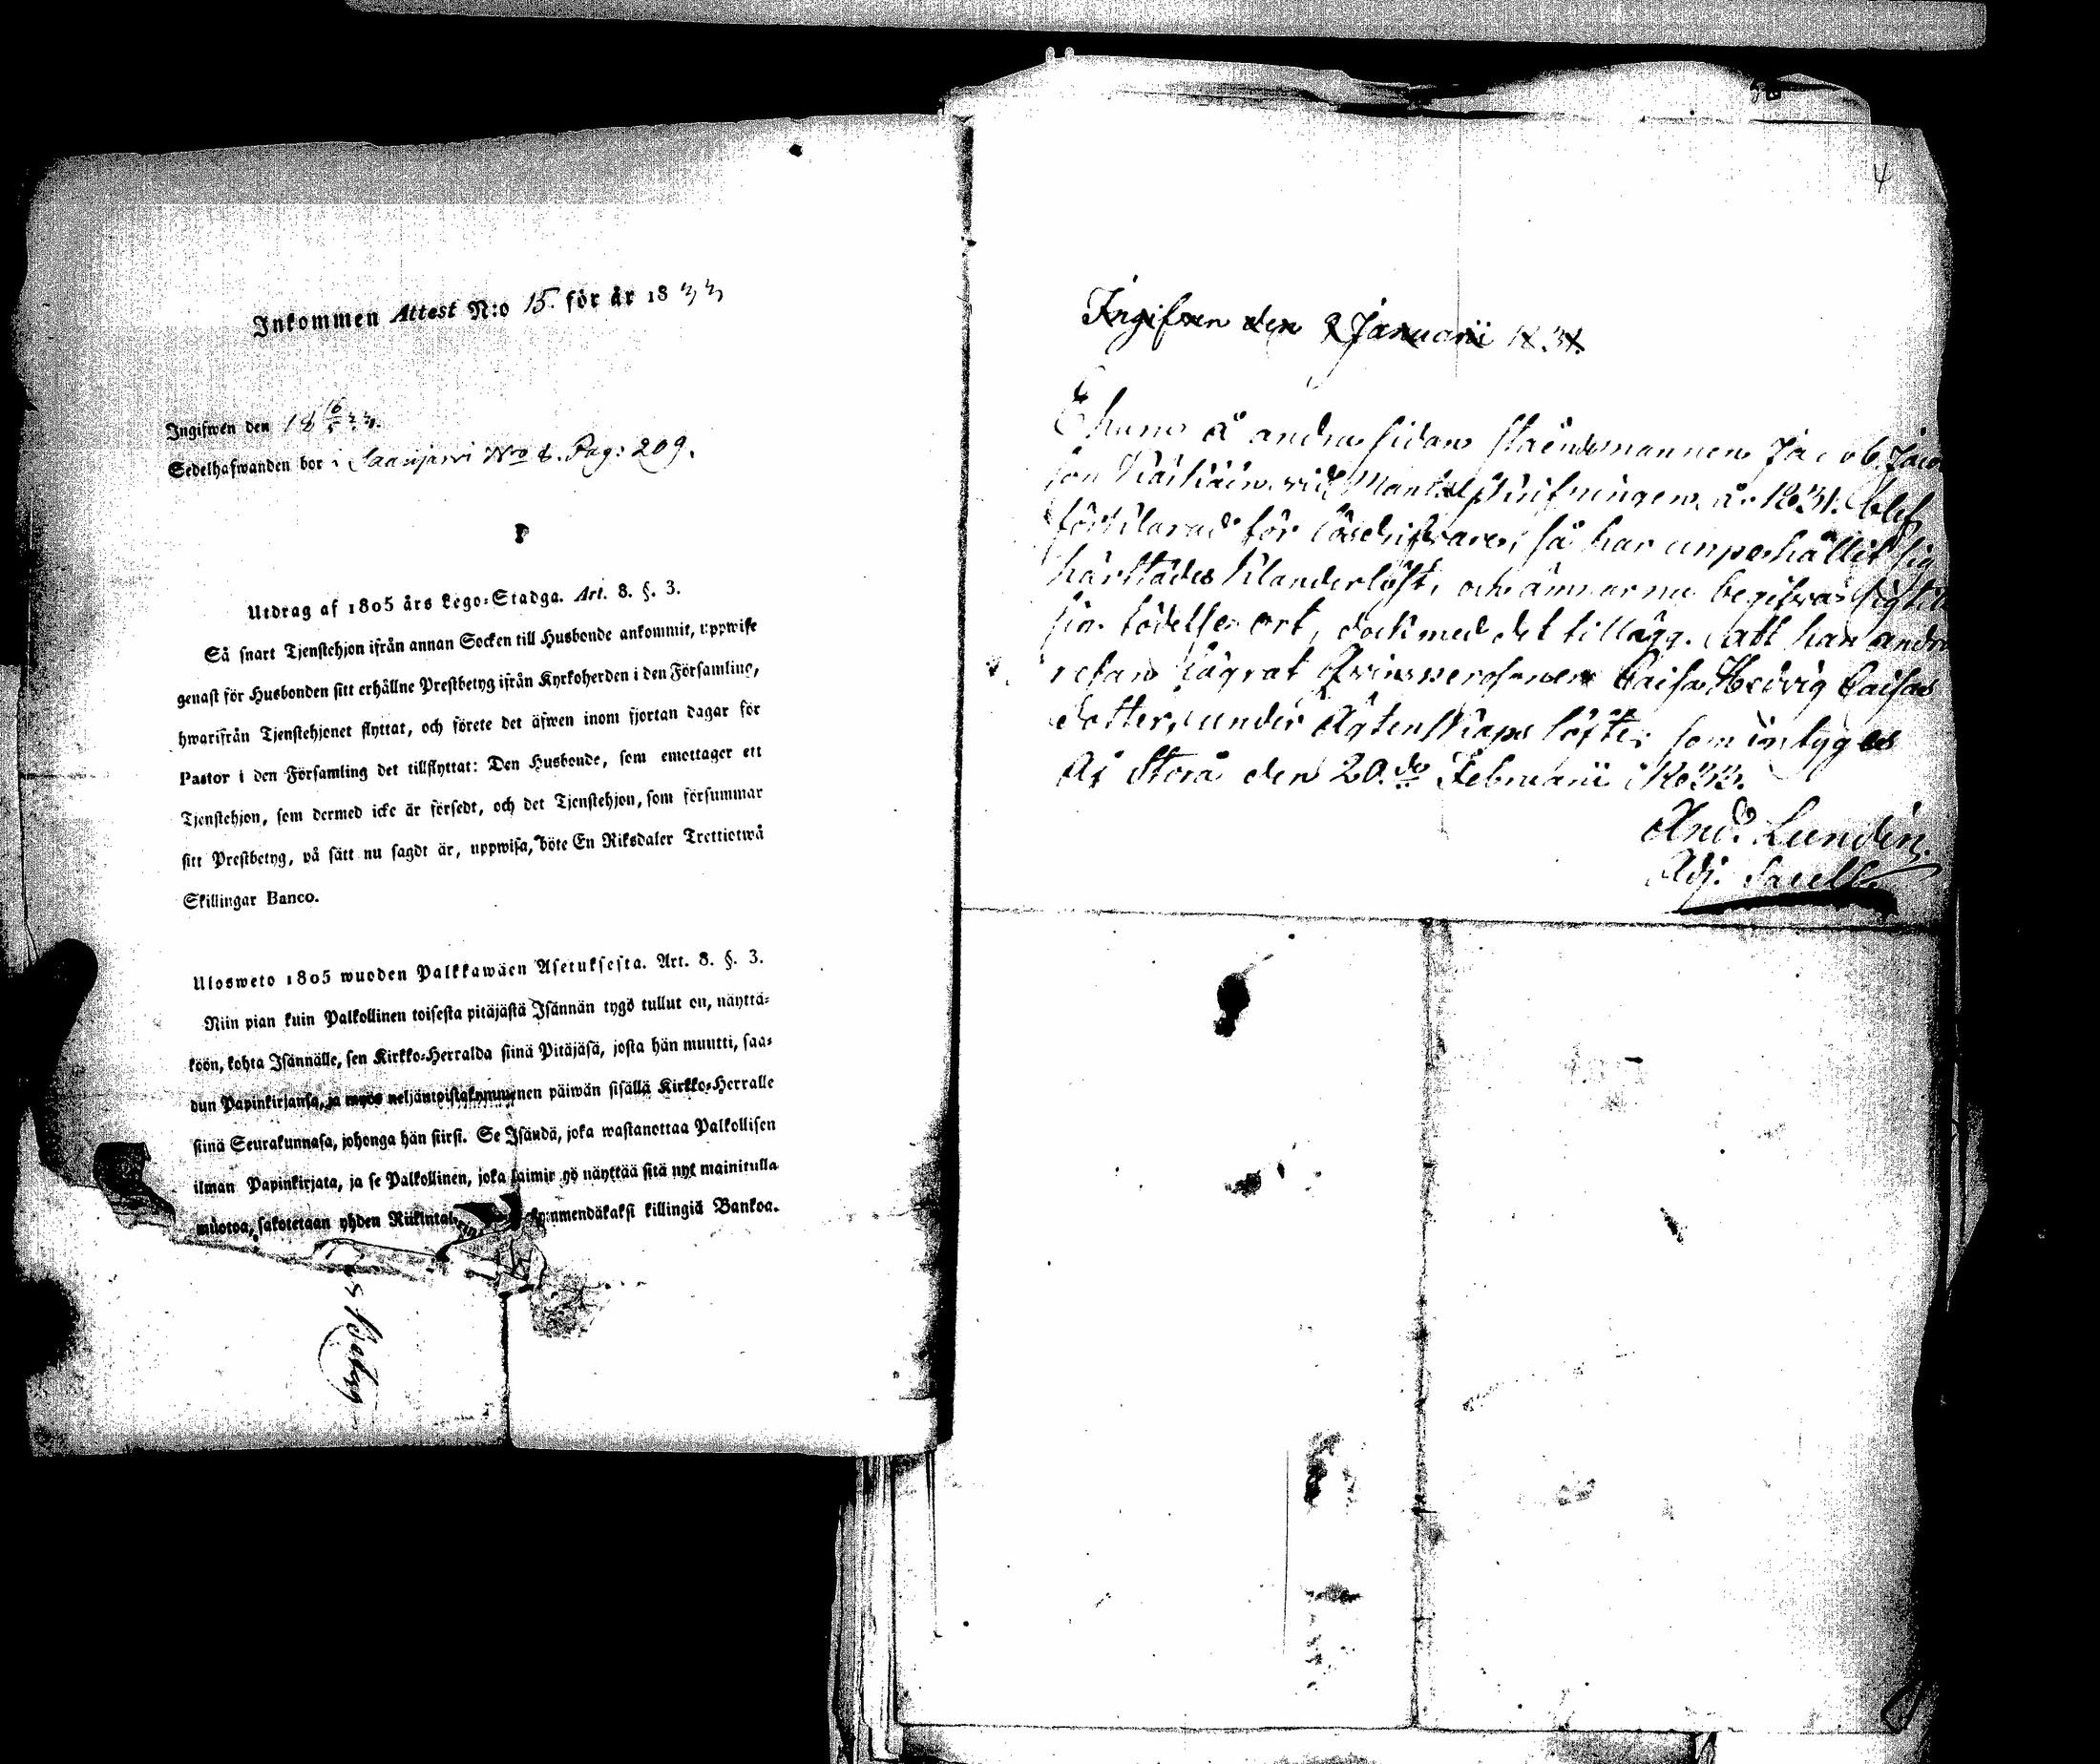 Inkommen Attest N:o 15. för år 1833
Ingifwen den 18 16/5 33.
Sedelhafwanden bor i Saarijärvi No 8. Pag: 209.
Utdrag af 1805 års Lego-Stadga. Art. 8. §. 3.
Så snart Tjenstehjon ifrån annan Socken till Husbonde ankommit, uppwise
genast för Husbonden sitt erhållne Prestbetyg ifrån Kyrkoherden i den Församling,
hwarifrån Tjenstehjonet flyttat, och förete det äfwen inom fjortan dagar för
Pastor i den Församling det tillflyttat: Den Husbonde, som emottager ett
Tjenstehjon, som dermed icke är försedt, och det Tjenstehjon, som försummar
sitt Prestbetyg, på sätt nu sagdt är, uppwisa, böte En Riksdaler Trettiotwå
Skillingar Banco.
Ulosweto 1805 wuoden Palkkawäen Asetuksesta. Art. 8. §. 3.
Niin pian kuin Palkollinen toisesta pitäjästä Isännän tygö tullut on, näyttä-
köön, kohta Isännälle, sen Kirkko-Herralda siinä Pitäjäsä, josta hän muutti, saa-
dun Papinkirjansa, ja myös neljäntoistakymmenen päiwän sisällä Kirkko-Herralle
siinä Seurakunnasa, johonga hän siirsi. Se Isändä, joka wastanottaa Palkollisen
ilman Papinkirjata, ja se Palkollinen, joka laimin yö näyttää sitä nyt mainitulla
muotoa, sakotetaan yhden Riikintal kymmendäkaksi killingiä Bankoa.
4
Ingifven den 2 Januarii 1834.
Ehuru å andra sidan Jacob Jaco
son vid Mantalskrifningen år 1831. blef
förklarad för lösdrifvare, så har han uppehållit sig
härstädes klanderlöst, och ämnar nu begifva sig till
sin födelse ort, dock med det tillägg. att han andra
resan lägrat Qvinspersonen Caisa Hedvig Caisas
dotter, under Ägtenskaps löfte; som intygas
Af Storå den 20.de Februarii 1833.
And. Lundin
Adj. Sacell.